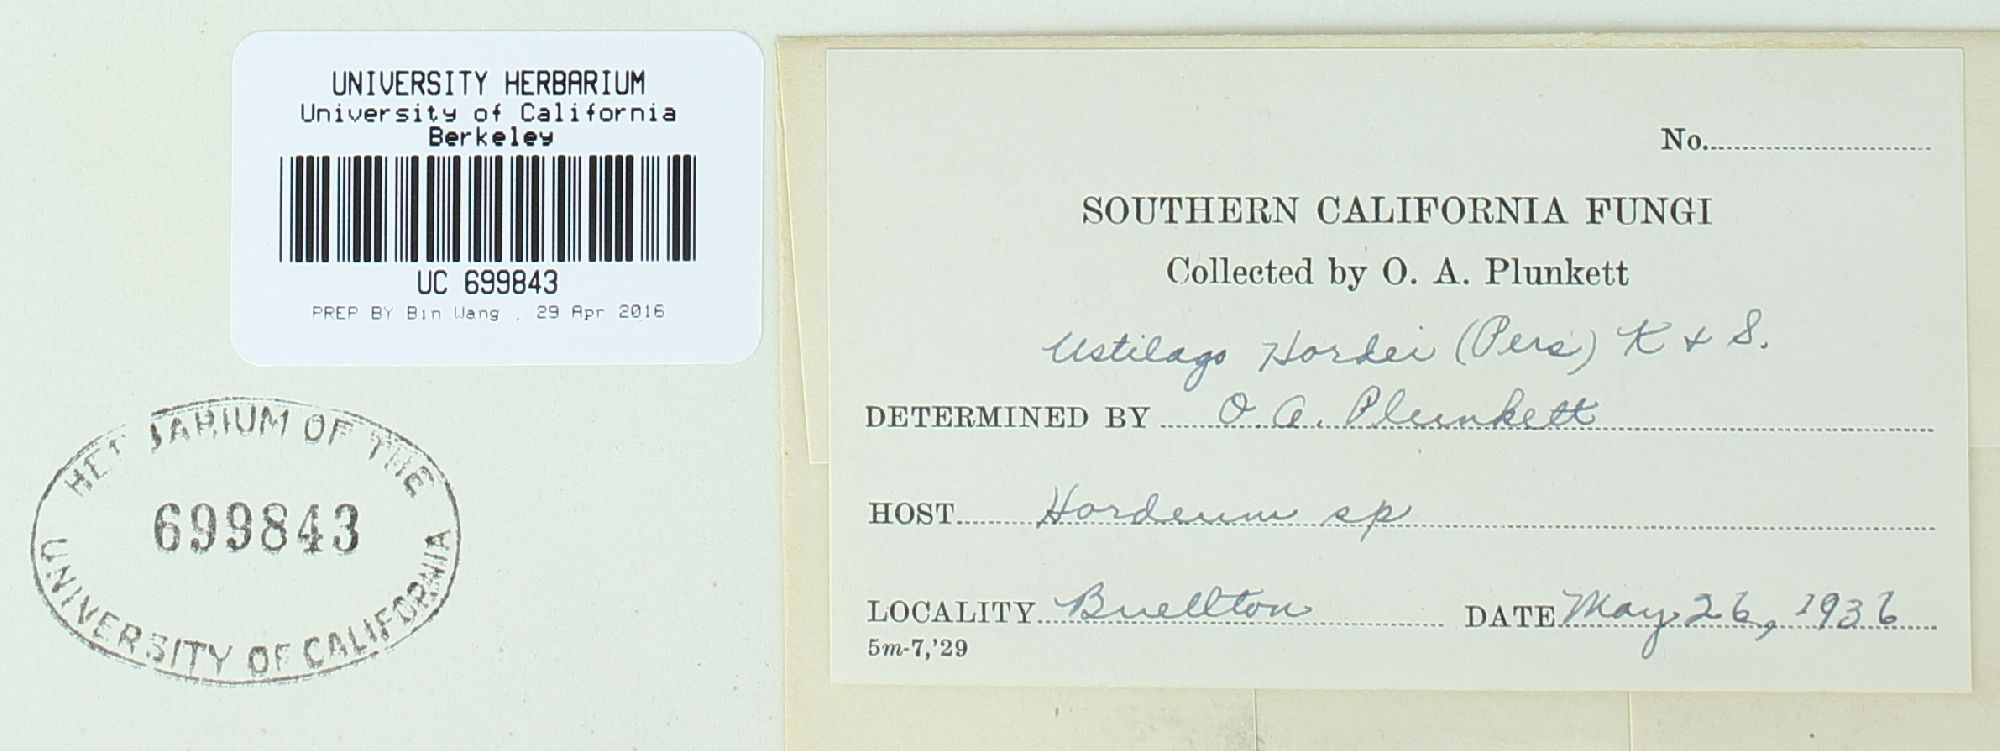 UNIVERSITY HERBARIUM
University of California
Berkeley
UC 699843
PREP BY Bin Wang , 29 Apr 2016
HERBARIUM OF THE
699843
UNIVERSITY OF CALIFORNIA
No.
SOUTHERN CALIFORNIA FUNGI
Collected by O. A. Plunkett
Ustilago Hordei (Pers) K & S.
DETERMINED BY O. A. Plunkett
HOST Hordeum sp
LOCALITY Buellton DATE May 26, 1936
5m-7,'29